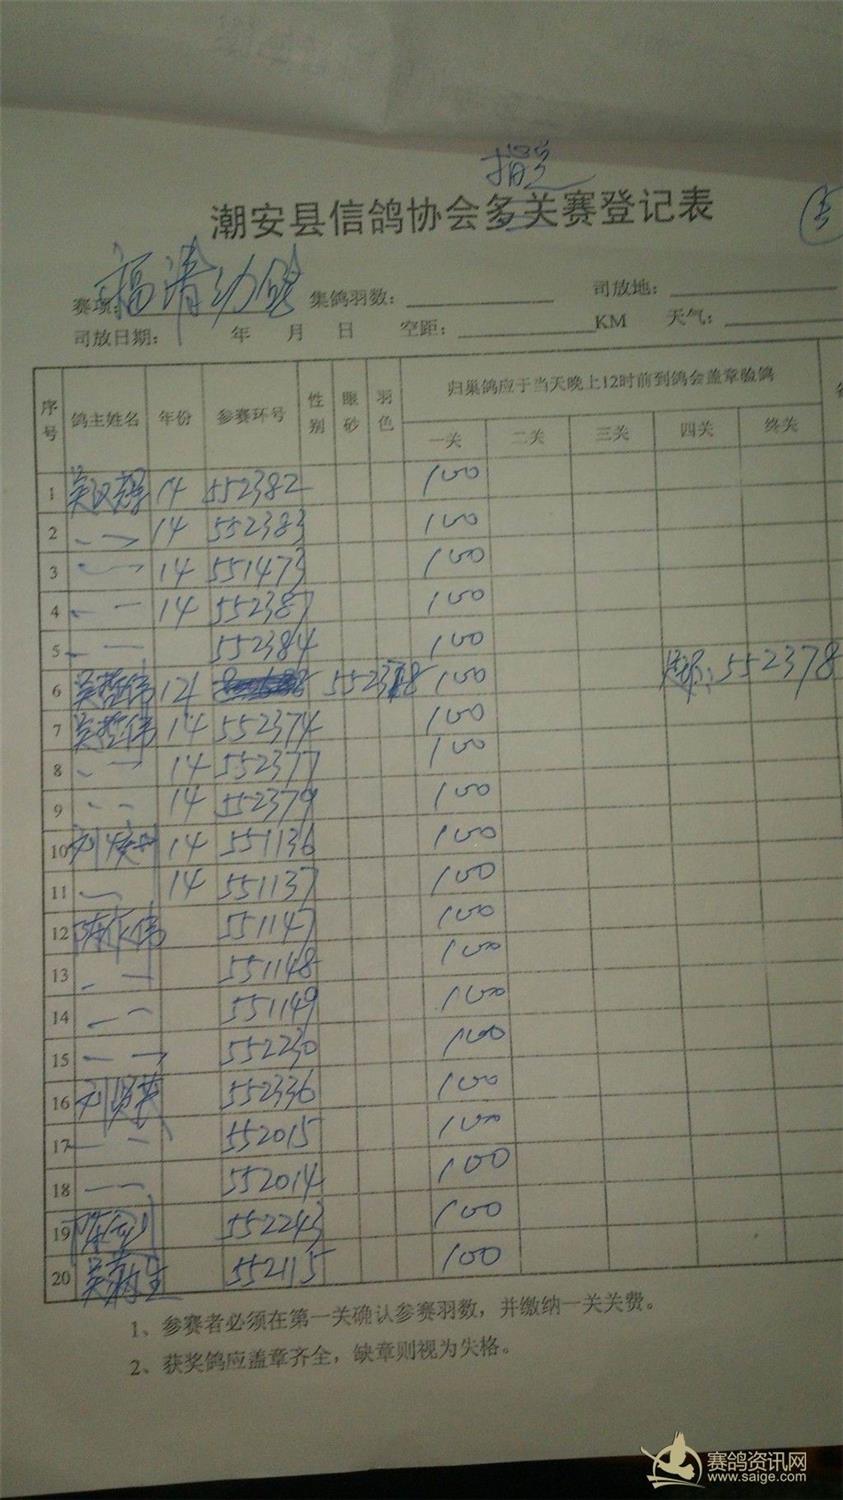 指定
潮安县信鸽协会多关赛登记表
赛项: 福清幼鸽 集鸽羽数: 司放地:
司放日期: 年 月 日 空距: KM 天气:
序号 鸽主姓名 年份 参赛环号 性别 眼砂 羽色 归巢鸽应于当天晚上12时前到鸽会盖章验鸽
一关 二关 三关 四关 终关
1 14 552382 100
2 14 552383 100
3 14 551473 100
4 14 552387 100
5 552384 100
6 吴哲伟 14 552378 100 552378
7 吴哲伟 14 552374 100
8 14 552377 100
9 14 552379 100
10 14 551136 100
11 14 551137 100
12 551147 100
13 551148 100
14 551149 100
15 552230 100
16 552336 100
17 552015 100
18 552014 100
19 552243 100
20 552115 100
1、参赛者必须在第一关确认参赛羽数，并缴纳一关关费。
2、获奖鸽应盖章齐全，缺章则视为失格。
赛鸽资讯网
www.saige.com